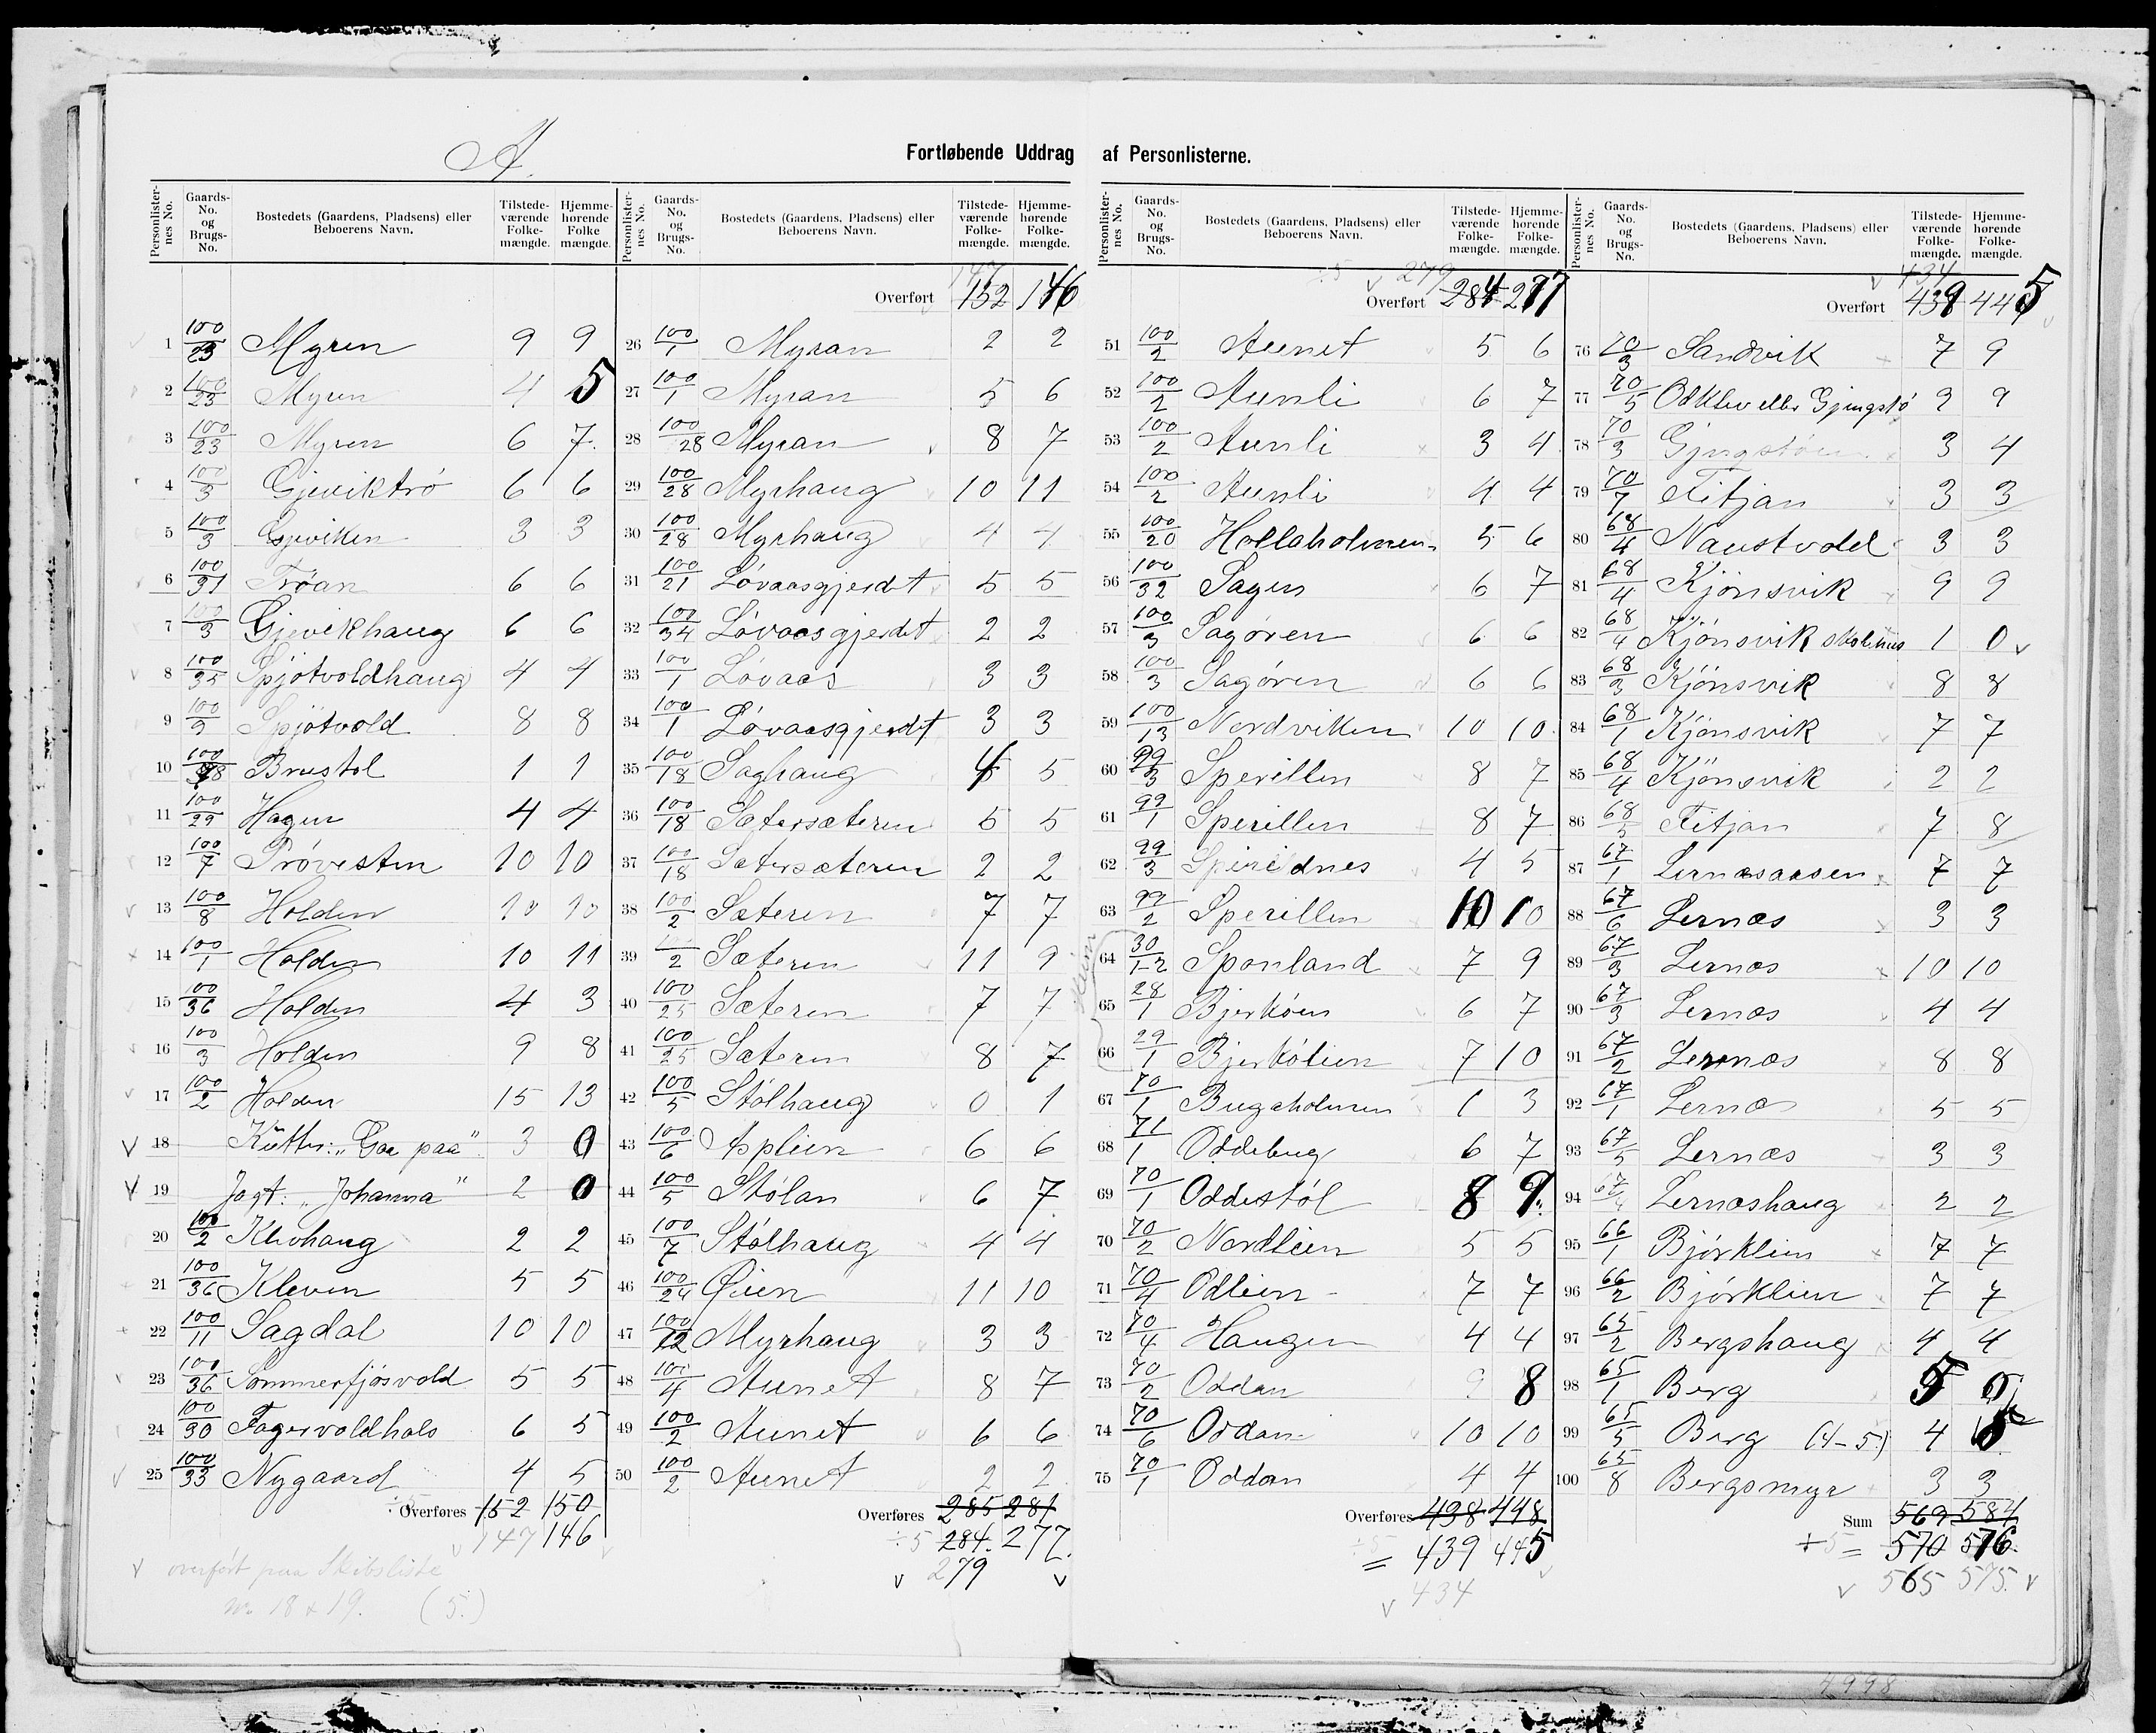 A.
Fortløbende Uddrag af Personlisterne.
Personlisternes No. Gaards-No. og Brugs-No. Bostedets (Gaardens, Pladsens) eller Beboerens Navn. Tilstedeværende Folkemængde. Hjemmehørende Folkemængde.
1 100/23 Myren 9 9
2 100/23 Myren 4 5
3 100/23 Myren 6 7
4 100/3 Gjeviktrø 6 6
5 100/3 Gjeviken 3 3
6 100/31 Trøan 6 6
7 100/3 Gjevikhaug 6 6
8 100/35 Spjøtvoldhaug 4 4
9 100/3 Spjøtvold 8 8
10 Brustol 1 1
11 100/29 Hagen 4 4
12 100/7 Prøvesten 10 10
13 100/8 Holden 10 10
14 100/1 Holden 10 11
15 100/36 Holden 4 3
16 100/3 Holden 9 8
17 100/2 Holden 15 13
18 Kutter: "Gaa paa" 3 0
19 Jagt: "Johanna" 2 0
20 100/2 Klevhaug 2 2
21 100/36 Kleven 5 5
22 100/11 Sagdal 10 10
23 100/36 Sommerfjøsvold 5 5
24 100/30 Fagervoldhals 6 5
25 100/33 Nygaard 4 5
÷5 Overføres 152 150
147 146
v overført paa Skibsliste
No 18 & 19. (5.)
Personlisternes No. Gaards-No. og Brugs-No. Bostedets (Gaardens, Pladsens) eller Beboerens Navn. Tilstedeværende Folkemængde. Hjemmehørende Folkemængde.
147
Overført 152 146
26 100/1 Myran 2 2
27 100/1 Myran 5 6
28 100/28 Myran 8 7
29 100/28 Myrhaug 10 11
30 100/28 Myrhaug 4 4
31 100/21 Løvaasgjerdet 5 5
32 100/34 Løvaasgjerdet 2 2
33 100/1 Løvaas 3 3
34 100/1 Løvaasgjerdet 3 3
35 100/18 Saghaug 5
36 100/18 Sætersæteren 5 5
37 100/18 Sætersæteren 2 2
38 100/2 Sæteren 7 7
39 /2 Sæteren 11 9
40 100/25 Sæteren 7 7
41 100/25 Sæteren 8 7
42 100/5 Stølhaug 0 1
43 100/6 Asplien 6 6
44 100/5 Stølan 6 7
45 100/7 Stølhaug 4 4
46 100/24 Øien 11 10
47 100/12 Myrhaug 3 3
48 100/4 Aunet 8 7
49 100/2 Aunet 6 6
50 100/2 Aunet 2 2
Overføres 285 281
÷5 284. 277.
v 279 v
Personlisternes No. Gaards-No. og Brugs-No. Bostedets (Gaardens, Pladsens) eller Beboerens Navn. Tilstedeværende Folkemængde. Hjemmehørende Folkemængde.
÷5 v 279
Overført 284 277
51 100/2 Aunet 5 6
52 100/2 Aunli 6 7
53 100/2 Aunli 3 4
54 100/2 Aunli 4 4
55 100/20 Hollaholmen 5 6
56 100/32 Sagen 6 7
57 100/3 Sagøren 6 6
58 100/3 Sagøren 6 6
59 100/13 Nordviken 10 10
60 99/3 Sperillen 8 7
61 99/1 Sperillen 8 7
62 99/3 Sperildnes 4 5
63 99/2 Sperillen 10 10
Heim
64 30/1-2 Sponland 7 9
65 28/1 Bjerkøen 6 7
66 29/1 Bjerkølien 7 10
67 70/1 Bugaholmen 1 3
68 71/1 Oddebug 6 7
69 70/1 Oddestøl 8 9
70 70/2 Nordlien 5 5
71 70/4 Odlien 7 7
72 70/4 Haugen 4 4
73 70/2 Oddan 9 8
74 70/6 Oddan 10 10
75 70/1 Oddan 4 4
Overføres 438 448
÷5 = 439 445
v 434
Personlisternes No. Gaards-No. og Brugs-No. Bostedets (Gaardens, Pladsens) eller Beboerens Navn. Tilstedeværende Folkemængde. Hjemmehørende Folkemængde.
v 434
Overført 439 445
76 70/3 Sandvik 7 9
77 70/5 Odklev eller Gjengstø 9 9
78 70/3 Gjngstøen 3 4
79 70/7 Titjan 3 3
80 68/4 Naustvold 3 3
81 68/4 Kjønsvik 9 9
82 68/4 Kjønsvik skolehus 1 0 v
83 68/3 Kjønsvik 8 8
84 68/1 Kjønsvik 7 7
85 68/4 Kjønsvik 2 2
86 68/5 Titjan 7 8
87 67/1 Lernæsaasen 7 7
88 67/6 Lernæs 3 3
89 67/3 Lernæs 10 10
90 67/3 Lernæs 4 4
91 67/2 Lernæs 8 8
92 67/1 Lernæs 5 5
93 67/5 Lernæs 3 3
94 67/4 Lernæshaug 2 2
95 66/1 Bjørklien 7 7
96 66/2 Bjørklien 7 7
97 65/2 Bergshaug 4 4
98 65/1 Berg 5
99 65/5 Berg (4-5) 4
100 65/8 Bergsmyr 3 3
Sum 569 584
÷5 = 570 576
v 565 575. v
4998